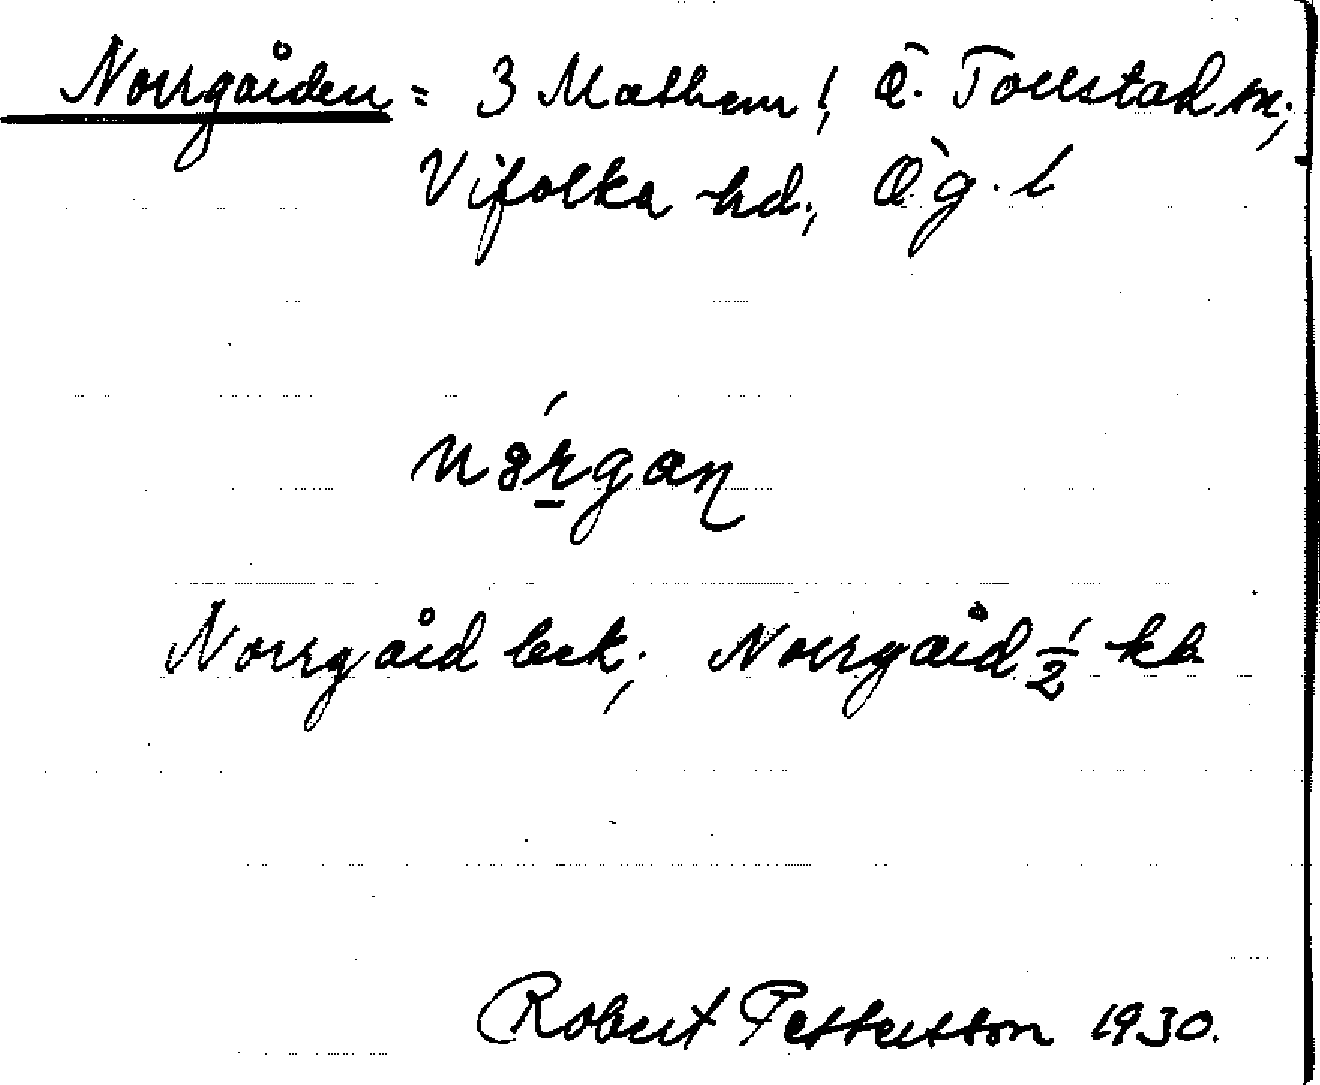 Norrgården = 3 Mathem, Ö. Tollstad sn;
Vifolka hd., Ög. l
Norrgård bek; Norrgård ½ kb
Robert Pettersson 1930.